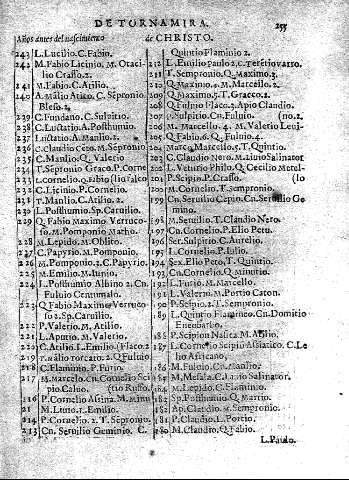 DE TORNAMIRA.
255
Años antes del nascimiento de CHRISTO.
243 L. Lucilio. C. Fabio.
242 M. Fabio Licinio. M. Otaci-
lio Crasso. 2.
241 M. Fabio. C. Atilio.
240 A. Malio Atico. C. Sépronio
Bleso. 2.
239 C. Fundano. C. Sulpitio.
238 C. Luctatio. A. Posthumio.
237 Luctatio. A. Manlio. 2.
236 C. Claudio Cēto. M. Sépronio
235 C. Manlio. Q. Valerio
234 T. Sépronio Graco. P. Corne
233 L. cornelio. Q. Fabio
232 C. Licinio. P. Cornelio.
231 T. Manlio. C. Atilio. 2.
230 L. Posthumio. Sp. Caruilio.
229 Q. Fabio Maximo Verruco-
so. M. Pomponio Matho.
228 M. Lepido. M. Oblito.
227 C. Papyrio. M. Pomponio.
226 M. Pomponio. 2. C. Papyrio.
225 M. Emilio. M. Iunio.
224 L. Posthumio Albino 2. Cn.
Fuluio Centumalo.
223 Q Fabio Maximo Verruco
so 2. Sp. Caruilio.
222 P. Valerio. M. Atilio.
221 L. Aputio. M. Valerio
220 C. Atilio. L. Emilio. Flacco. 2
219 T. Torcato. 2. Q Fuluio
218 C. Flaminio. P. Furio.
217 M. Marcelo. Cn. Cornelio Sci
pio Caluo.
216 P. Cornelio Asina. M. Minu
21 M. Liuio. L. Emilio.
214 P. Cornelio. 2. T. Sépronio.
213 Cn. Seruilio Geminio. C.
Quintio Flaminio 2.
212 L. Emilio Paulo 2. C. Teretio varro.
211 T. Sempronio. Q. Maximo. 3.
210 Q. Maximo. 4. M. Marcello. 2.
209 Q. Maximo. 5. T. Gracco. 2.
208 Q. Fuluio Flaco. 3. Apio Claudio.
207 C. Sulpitio. Cn. Fuluio. (no. 2.
206 M. Marcello. 4. M. Valerio Leui-
205 Q. Fabio. 6. Q. Fuluio. 4.
204 Marco Marcello. 5. T. Quintio.
203 C. Claudio Nero. M. Liuio Salinator
202 L. Veturio Philo. Q Cecilio Metel-
201 P. Scipio. P. Crasso. (lo
200 M. Cornelio. T. sempronio.
199 Cn. Seruilio Cepio. Cn. Seruilio Ge
mino.
198 M. Seruilio. T. Claudio Nero.
197 Cn. Cornelio. P. Elio Petu
196 Ser. Sulpitio. C. Aurelio.
195 L. Cornelio. P. Iulio.
194 Sex. Elio Peto. T. Quintio.
193 Cn. Cornelio Q. Minutio.
192 L. Furio. M. Marcello.
191 L. Valerio. M. Portio Caton.
190 P. Scipio. 2. T. Sempronio.
189 L. Quintio Flaminco. Cn. Domitio
Enobarbo.
188 P. Scipion Nasica. M. Atilio
187 L. Cornelio Scipio Asiatico. C. Le
lio Africano,
186 M. Fuluio. Cn. Manlio.
185 M. Liuio Salinator.
184 M. Lepido. C. Flaminio.
183 Sp. Posthumio. Q. Martio.
182 Ap. Claudio. M. Sempronio.
181 P. Claudio. L. Portio.
180 M. Claudio. Q. Fabio.
L. Paulo.